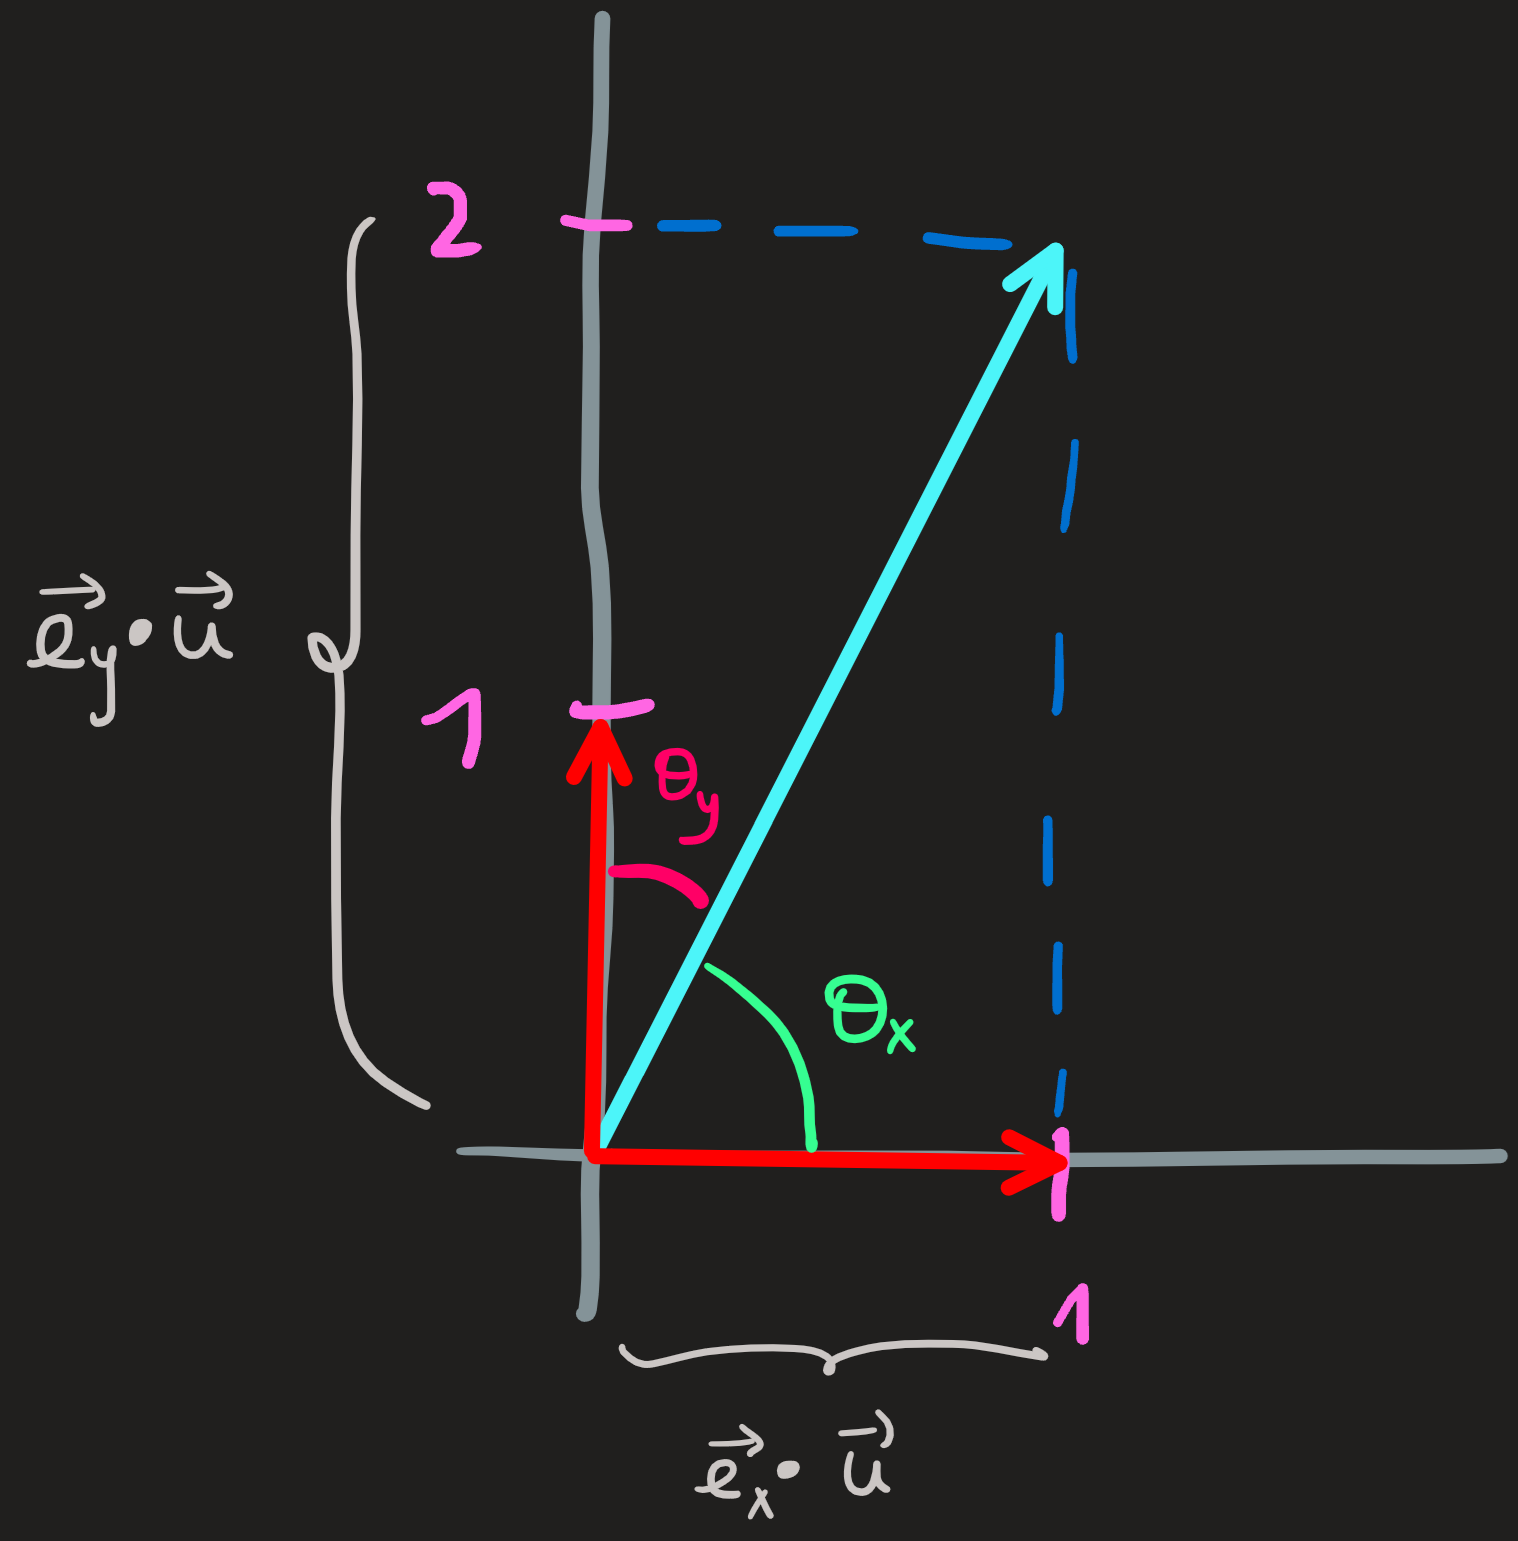 2
e⃗_y · u⃗
1
θ_y
θ_x
1
e⃗_x · u⃗